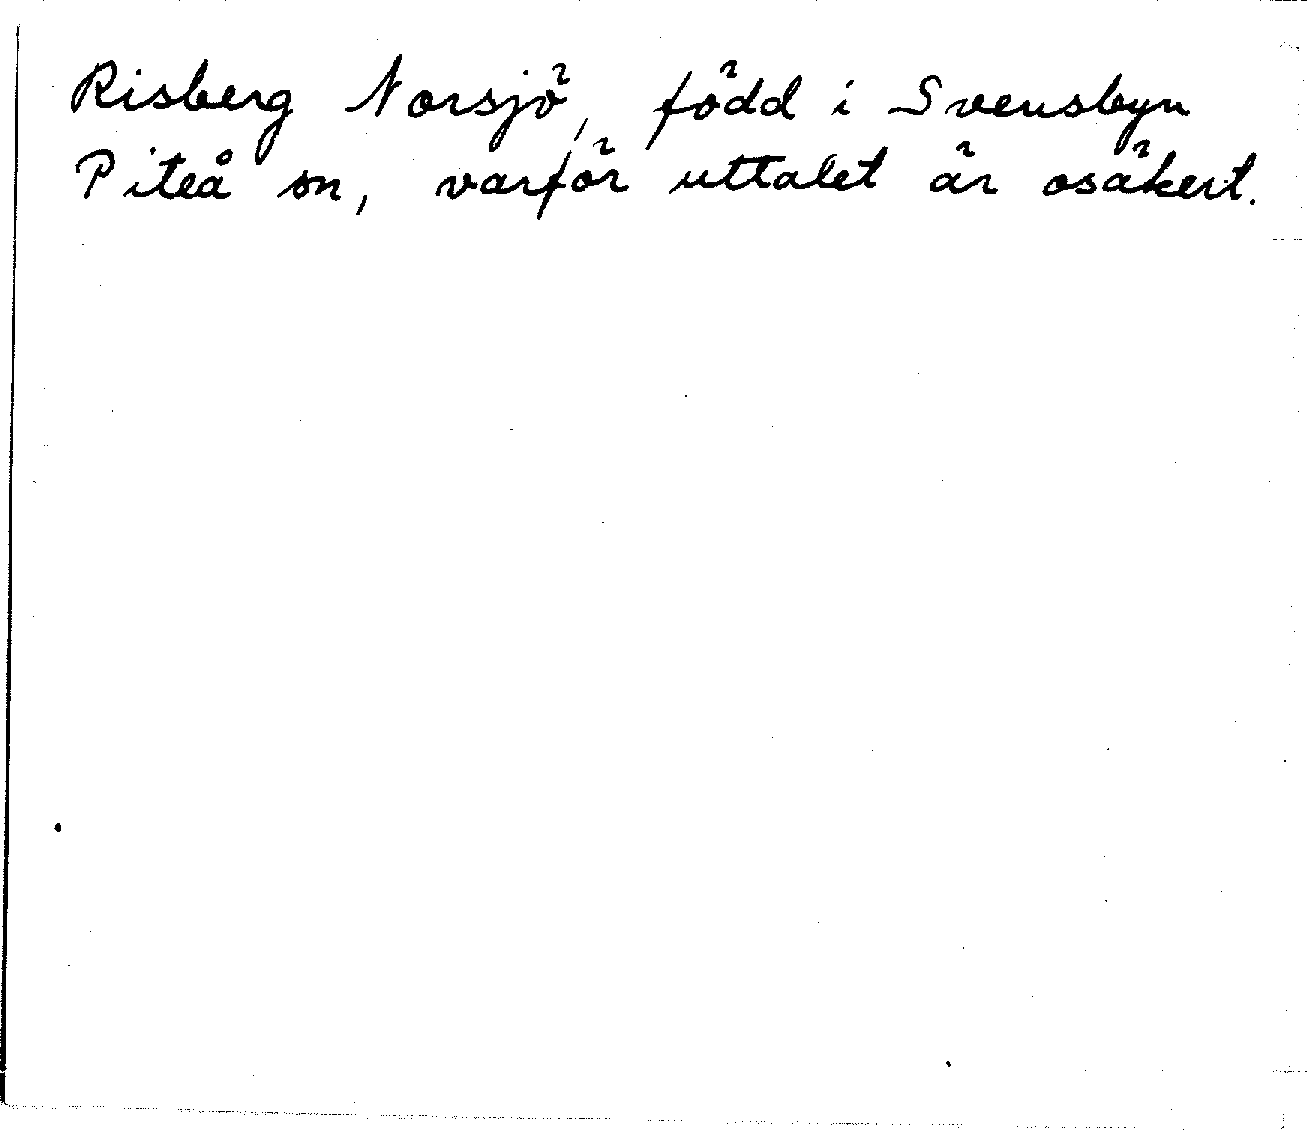 Risberg Norsjö, född i Svensbyn
Piteå sn, varför uttalet är osäkert.